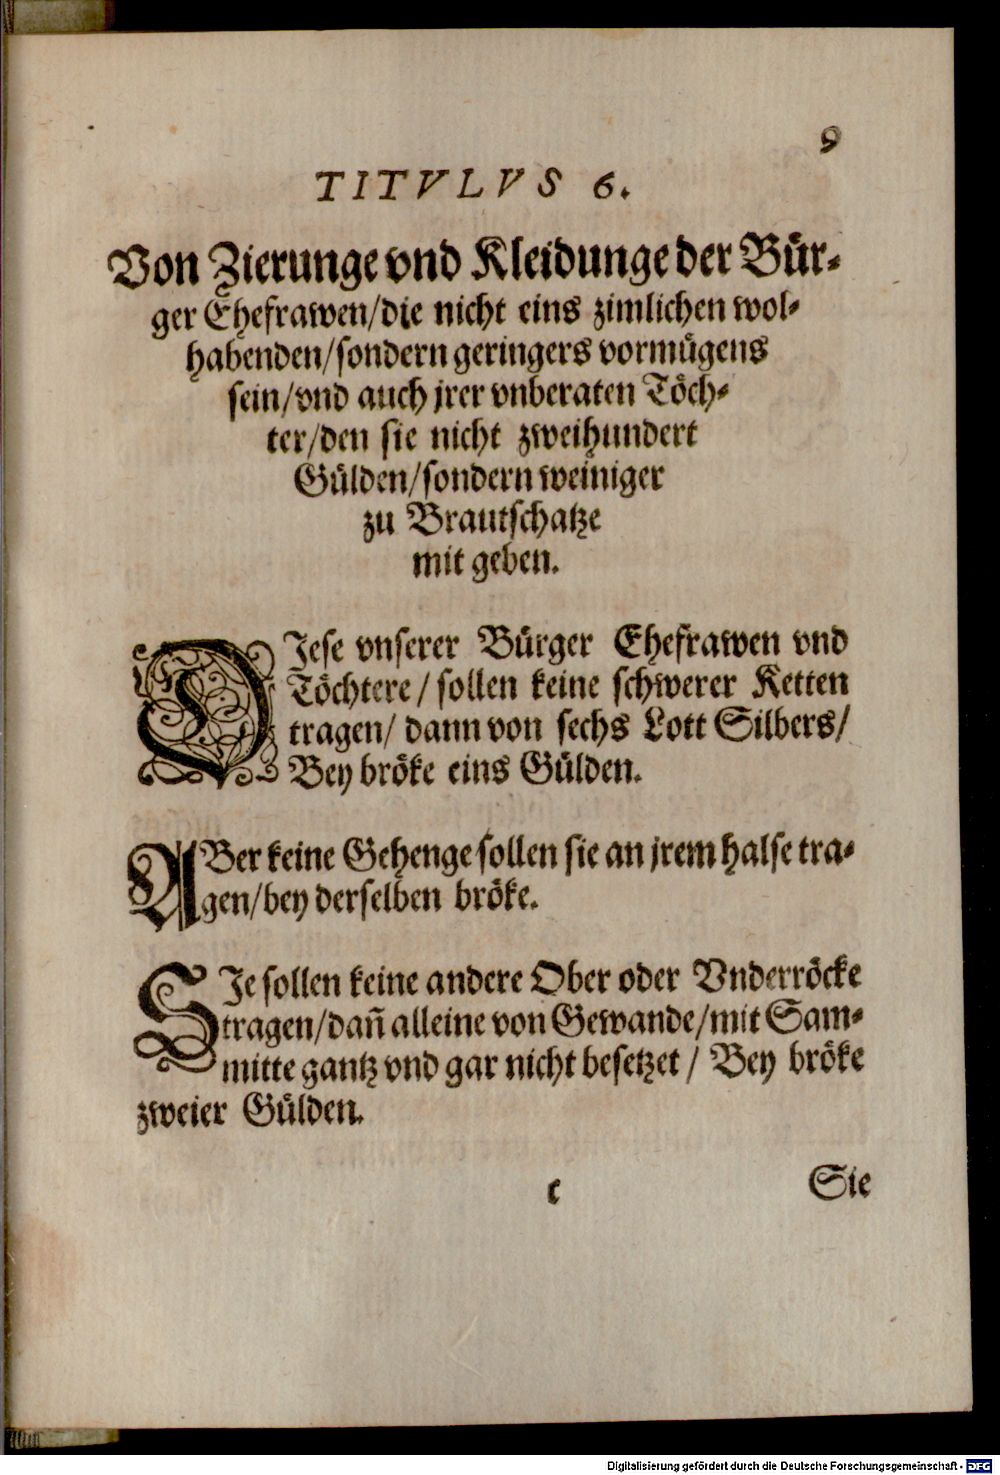 9
TITVLVS 6.
Von Zierunge vnd Kleidunge der Bür-
ger Ehefrawen/die nicht eins zimlichen wol-
habenden/sondern geringers vormügens
sein/vnd auch jrer vnberaten Töch-
ter/den sie nicht zweihundert
Gülden/sondern weiniger
zu Brautschatze
mit geben.
DIese vnserer Bürger Ehefrawen vnd
Töchtere/ sollen keine schwerer Ketten
tragen/ dann von sechs Lott Silbers/
Bey bröke eins Gülden.
ABer keine Gehenge sollen sie an jrem halse tra-
gen/bey derselben bröke.
SIe sollen keine andere Ober oder Vnderröcke
tragen/dañ alleine von Gewande/mit Sam-
mitte gantz vnd gar nicht besetzet/ Bey bröke
zweier Gülden.
c Sie
Digitalisierung gefördert durch die Deutsche Forschungsgemeinschaft - DFG